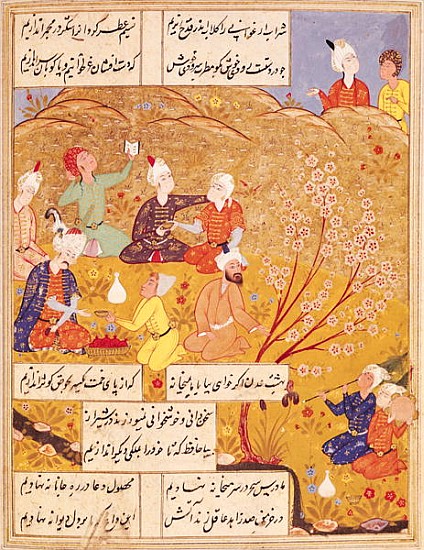 شراب ارغوانی را گلاب اندر قدح ریزیم نسیم عطر گردان را شکر در مجمر اندازیم
چو در دستست رودی خوش بگو مطرب سرودی خوش که دست افشان غزل خوانیم و پاکوبان سر اندازیم
بهشت عدن اگر خواهی بیا با ما بمیخانه که از پای خمت یکسر بحوض کوثر اندازیم
سخن دانی و خوشخوانی نمی‌ورزند در شیراز
بیا حافظ که تا خود را بملکی دیگر اندازیم
ما درس سحر در سر میخانه نهادیم محصول دعا در ره جانانه نهادیم
در خرمن صد زاهد عاقل زند آتش این داغ که ما بر دل دیوانه نهادیم